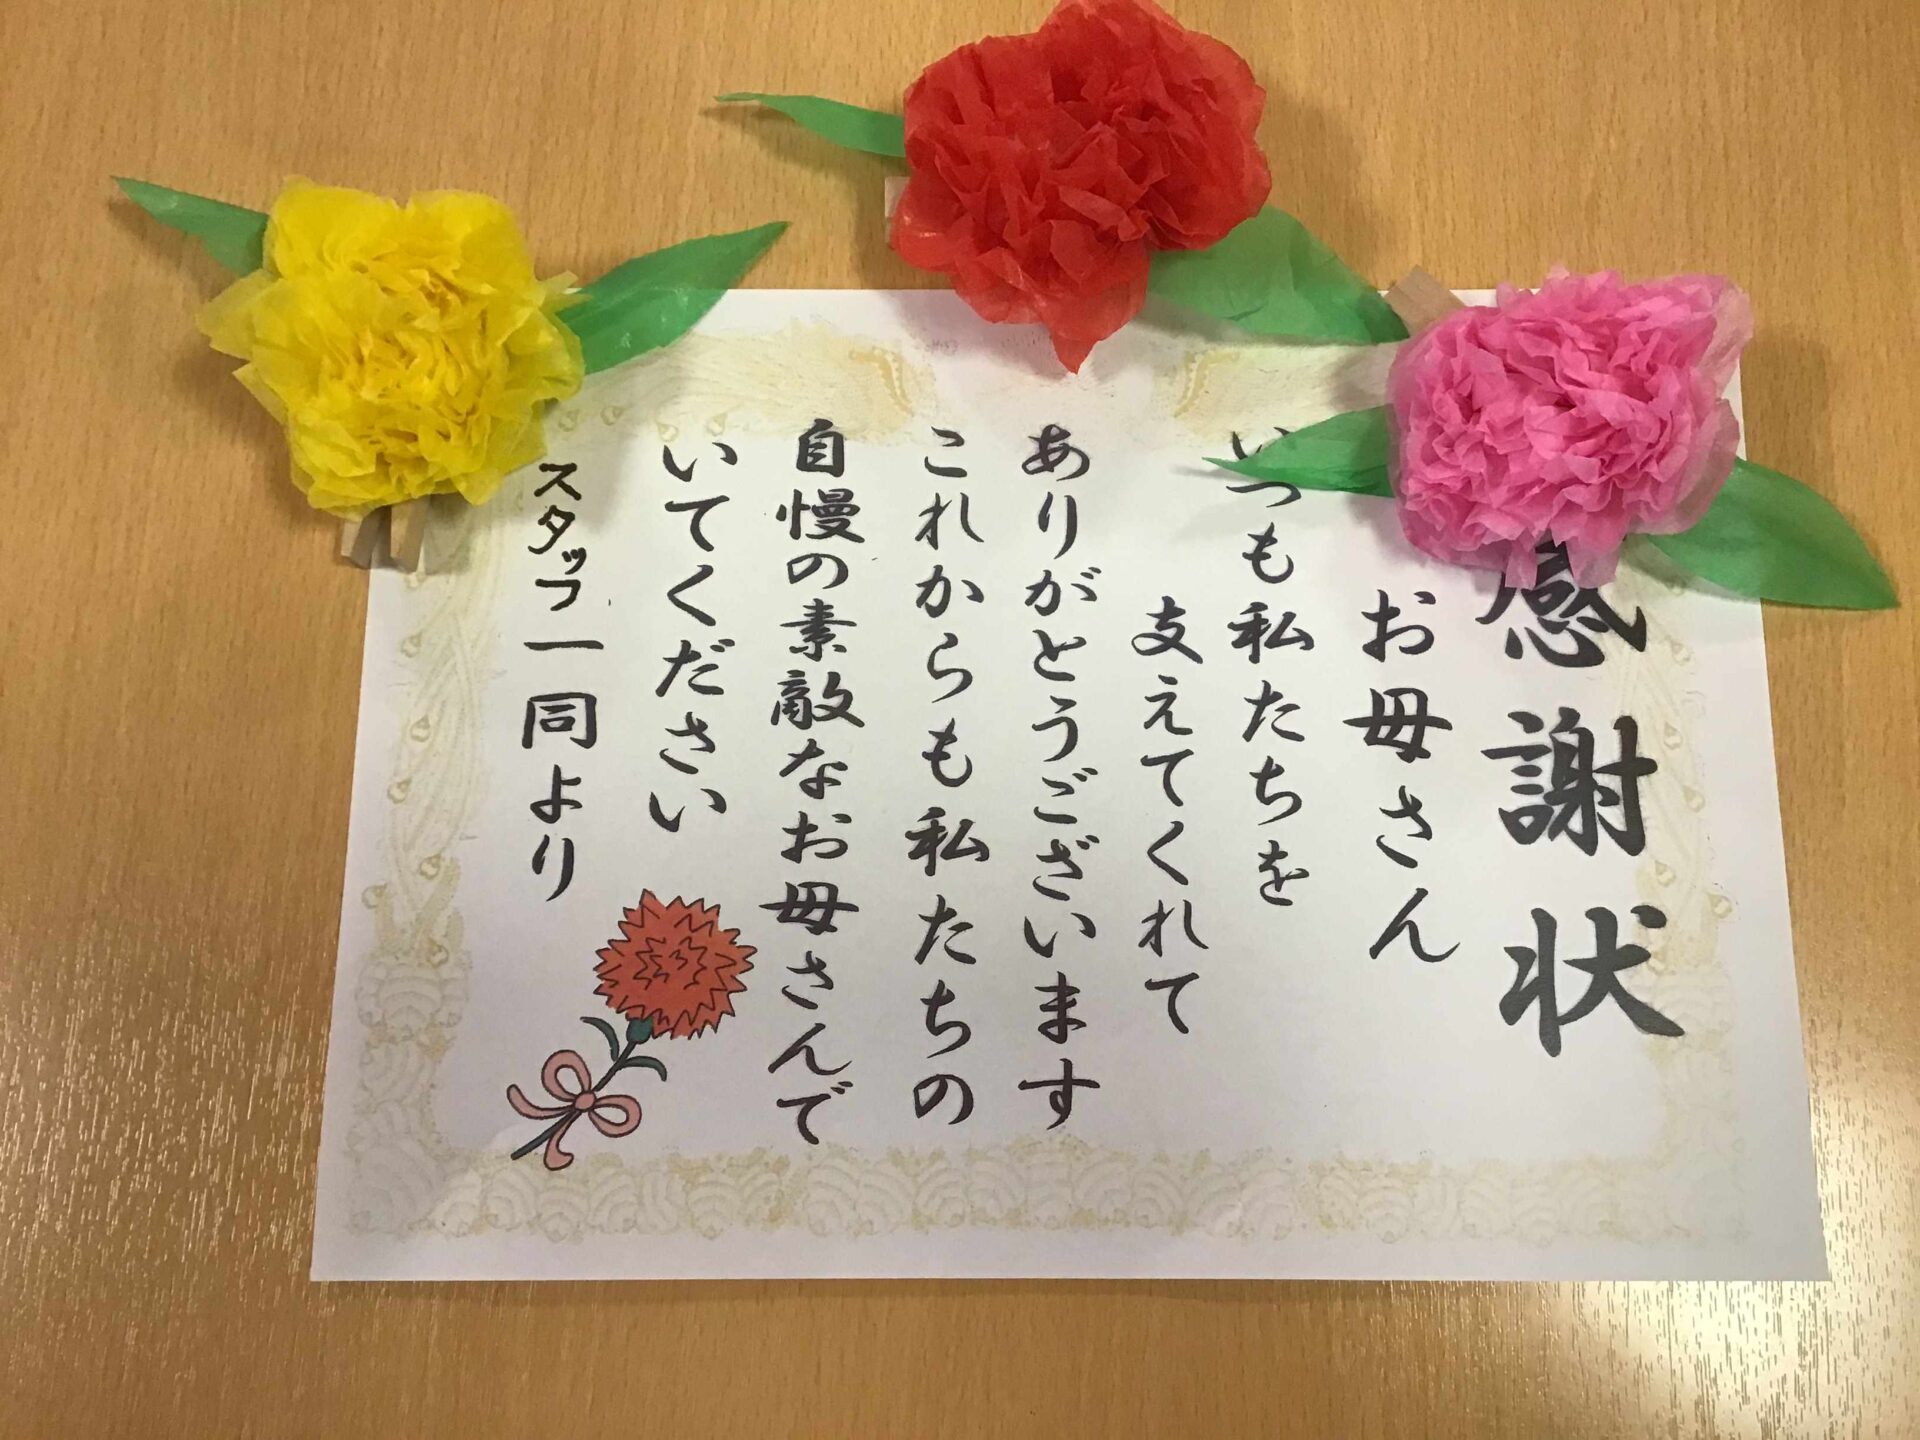 感謝状
お母さん
いつも私たちを
支えてくれて
ありがとうございます
これからも私たちの
自慢の素敵なお母さんで
いてください
スタッフ一同より